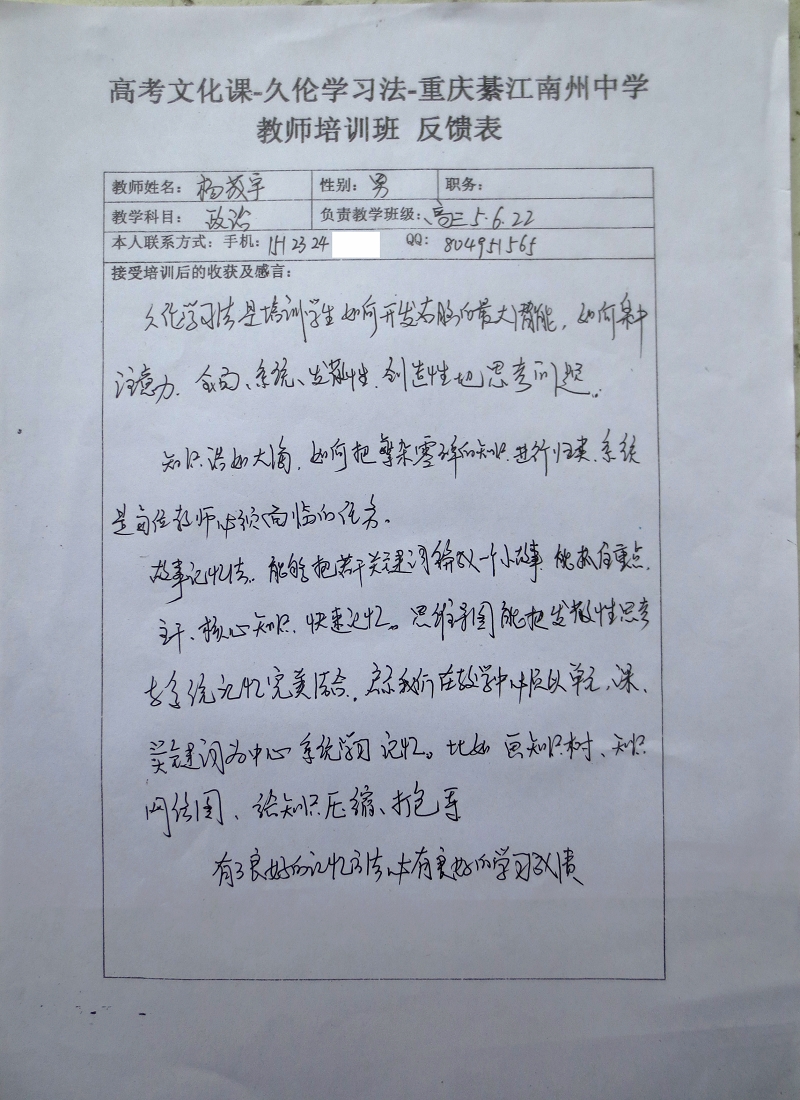 高考文化课-久伦学习法-重庆綦江南州中学
教师培训班 反馈表
教师姓名：杨教宇 性别：男 职务：
教学科目：政治 负责教学班级：高三5.6.22
本人联系方式：手机：151 23 24 QQ：804951565
接受培训后的收获及感言：
久伦学习法是培训学生如何开发右脑的最大潜能，如何集中
注意力、全面、系统、发散性、创造性地思考问题。
知识浩如大海，如何把繁杂零碎的知识进行归类、系统
是每位教师必须面临的任务。
故事记忆法。能够把若干关键词编成一个小故事 能抓住重点、
主干、核心知识、快速记忆。思维导图能把发散性思考
与系统记忆完美结合，启示我们在教学中以单元、课、
关键词为中心 系统学习 记忆。比如 画知识树、知识
网络图、给知识压缩、打包等
有了良好的记忆方法 有良好的学习成绩